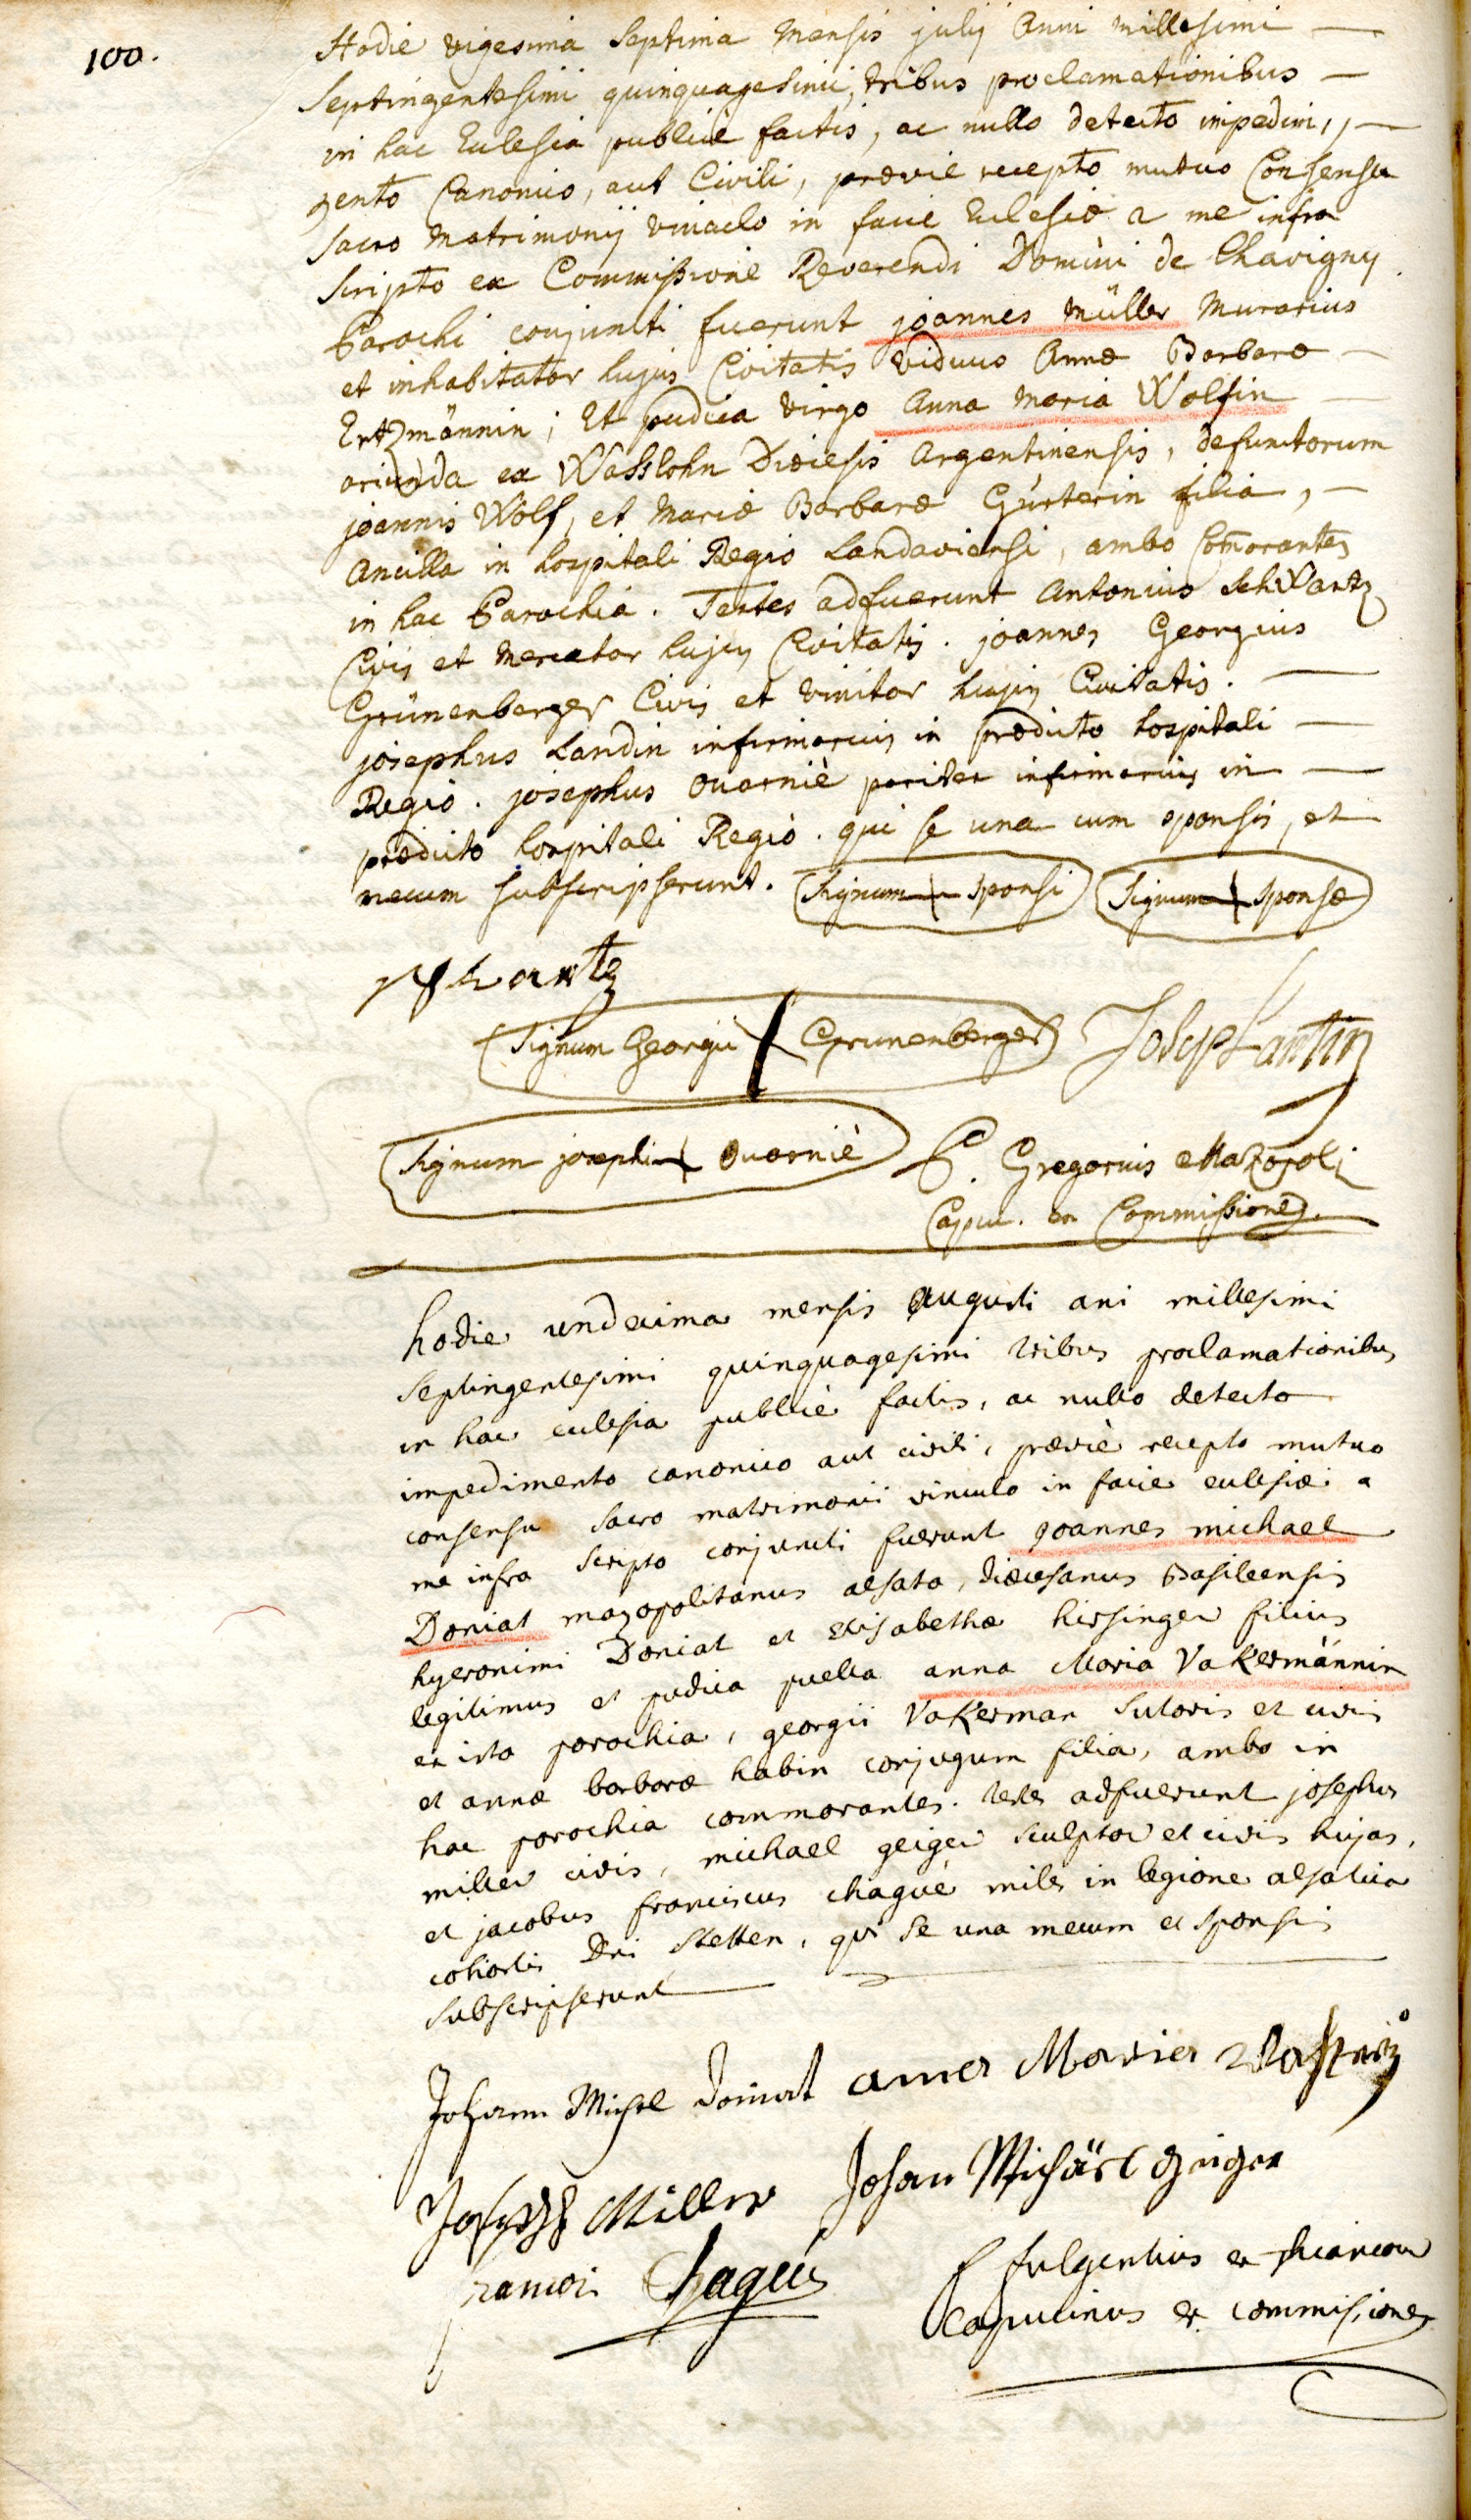 100.
Hodie vigesima Septima Mensis julij Anni millesimi
Septingentesimi quinquagesimi, tribus proclamationibus
in hac Eclesia publicè factis, ac nullo detecto impedim,,
mento Canonico, aut Civili, prævie recepto mutuo Consensu
Sacro Matrimonij vinculo in facie Eclesiæ a me infra
Scripto ex Commissione Reverendi Domini de Chavigny
Parochi conjuncti fuerunt joannes Müller Murarius
et inhabitator hujus Civitatis viduus Annæ Barbaræ
Ertzmännin; Et pudica virgo Anna Maria Wolfin
oriunda ex Wasslohn Diœcesis Argentinensis, defunctorum
joannis Wolf, et Mariæ Barbaræ Gürterin filia,
Ancilla in hospitali Regio Landaviensi, ambo Comorantes
in hac Parochia. Testes adfuerunt Antonius Schwartz
Civis et Mercator hujus Civitatis. joannes Georgius
Grünenberger Civis et vinitor hujus Civitatis.
josephus Landin infirmarius in prædicto hospitali
Regio. josephus Ovarniè pariter infirmarius in
prædicto hospitali Regio. qui se una cum sponsis, et
mecum subscripserunt. Signum sponsi Signum sponsæ
Schwartz
Signum Georgii Grunenberger Josep Lantin
Signum josephi Ovarniè P. Gregorius Mazopoli
Capu. ex Commissione.
hodie undecima mensis Augusti ani millesimi
Septingentesimi quinquagesimi tribus proclamationibus
in hac eclesia publicè factis, ac nullo detecto
impedimento canonico aut civili, præviè recepto mutuo
consensu sacro matrimonii vinculo in facie eclesiæ a
me infra scripto conjuncti fuerunt joannes michael
Doniat mazopolitanus alsata, diœcesanus Basileensis
hyeronimi Doniat et Elisabethæ hirsinger filius
legitimus et pudica puella anna Maria Vakermännin
ex ista parochia, georgii Vakerman sutoris et civis
et annæ barbaræ habin conjugum filia, ambo in
hac parochia commorantes. testes adfuerunt josephus
miller civis, michael geiger sculptor et civis hujas,
et jacobus franciscus chaguè miles in legione alsatica
cohortis Dni stetten, qui se una mecum et sponsis
subscripserunt
Johann Michel Doniat anna Maria
Joseph Miller Johan Michäel geiger
francoi Chague f fulgentius ex
Capucinus ex commissione